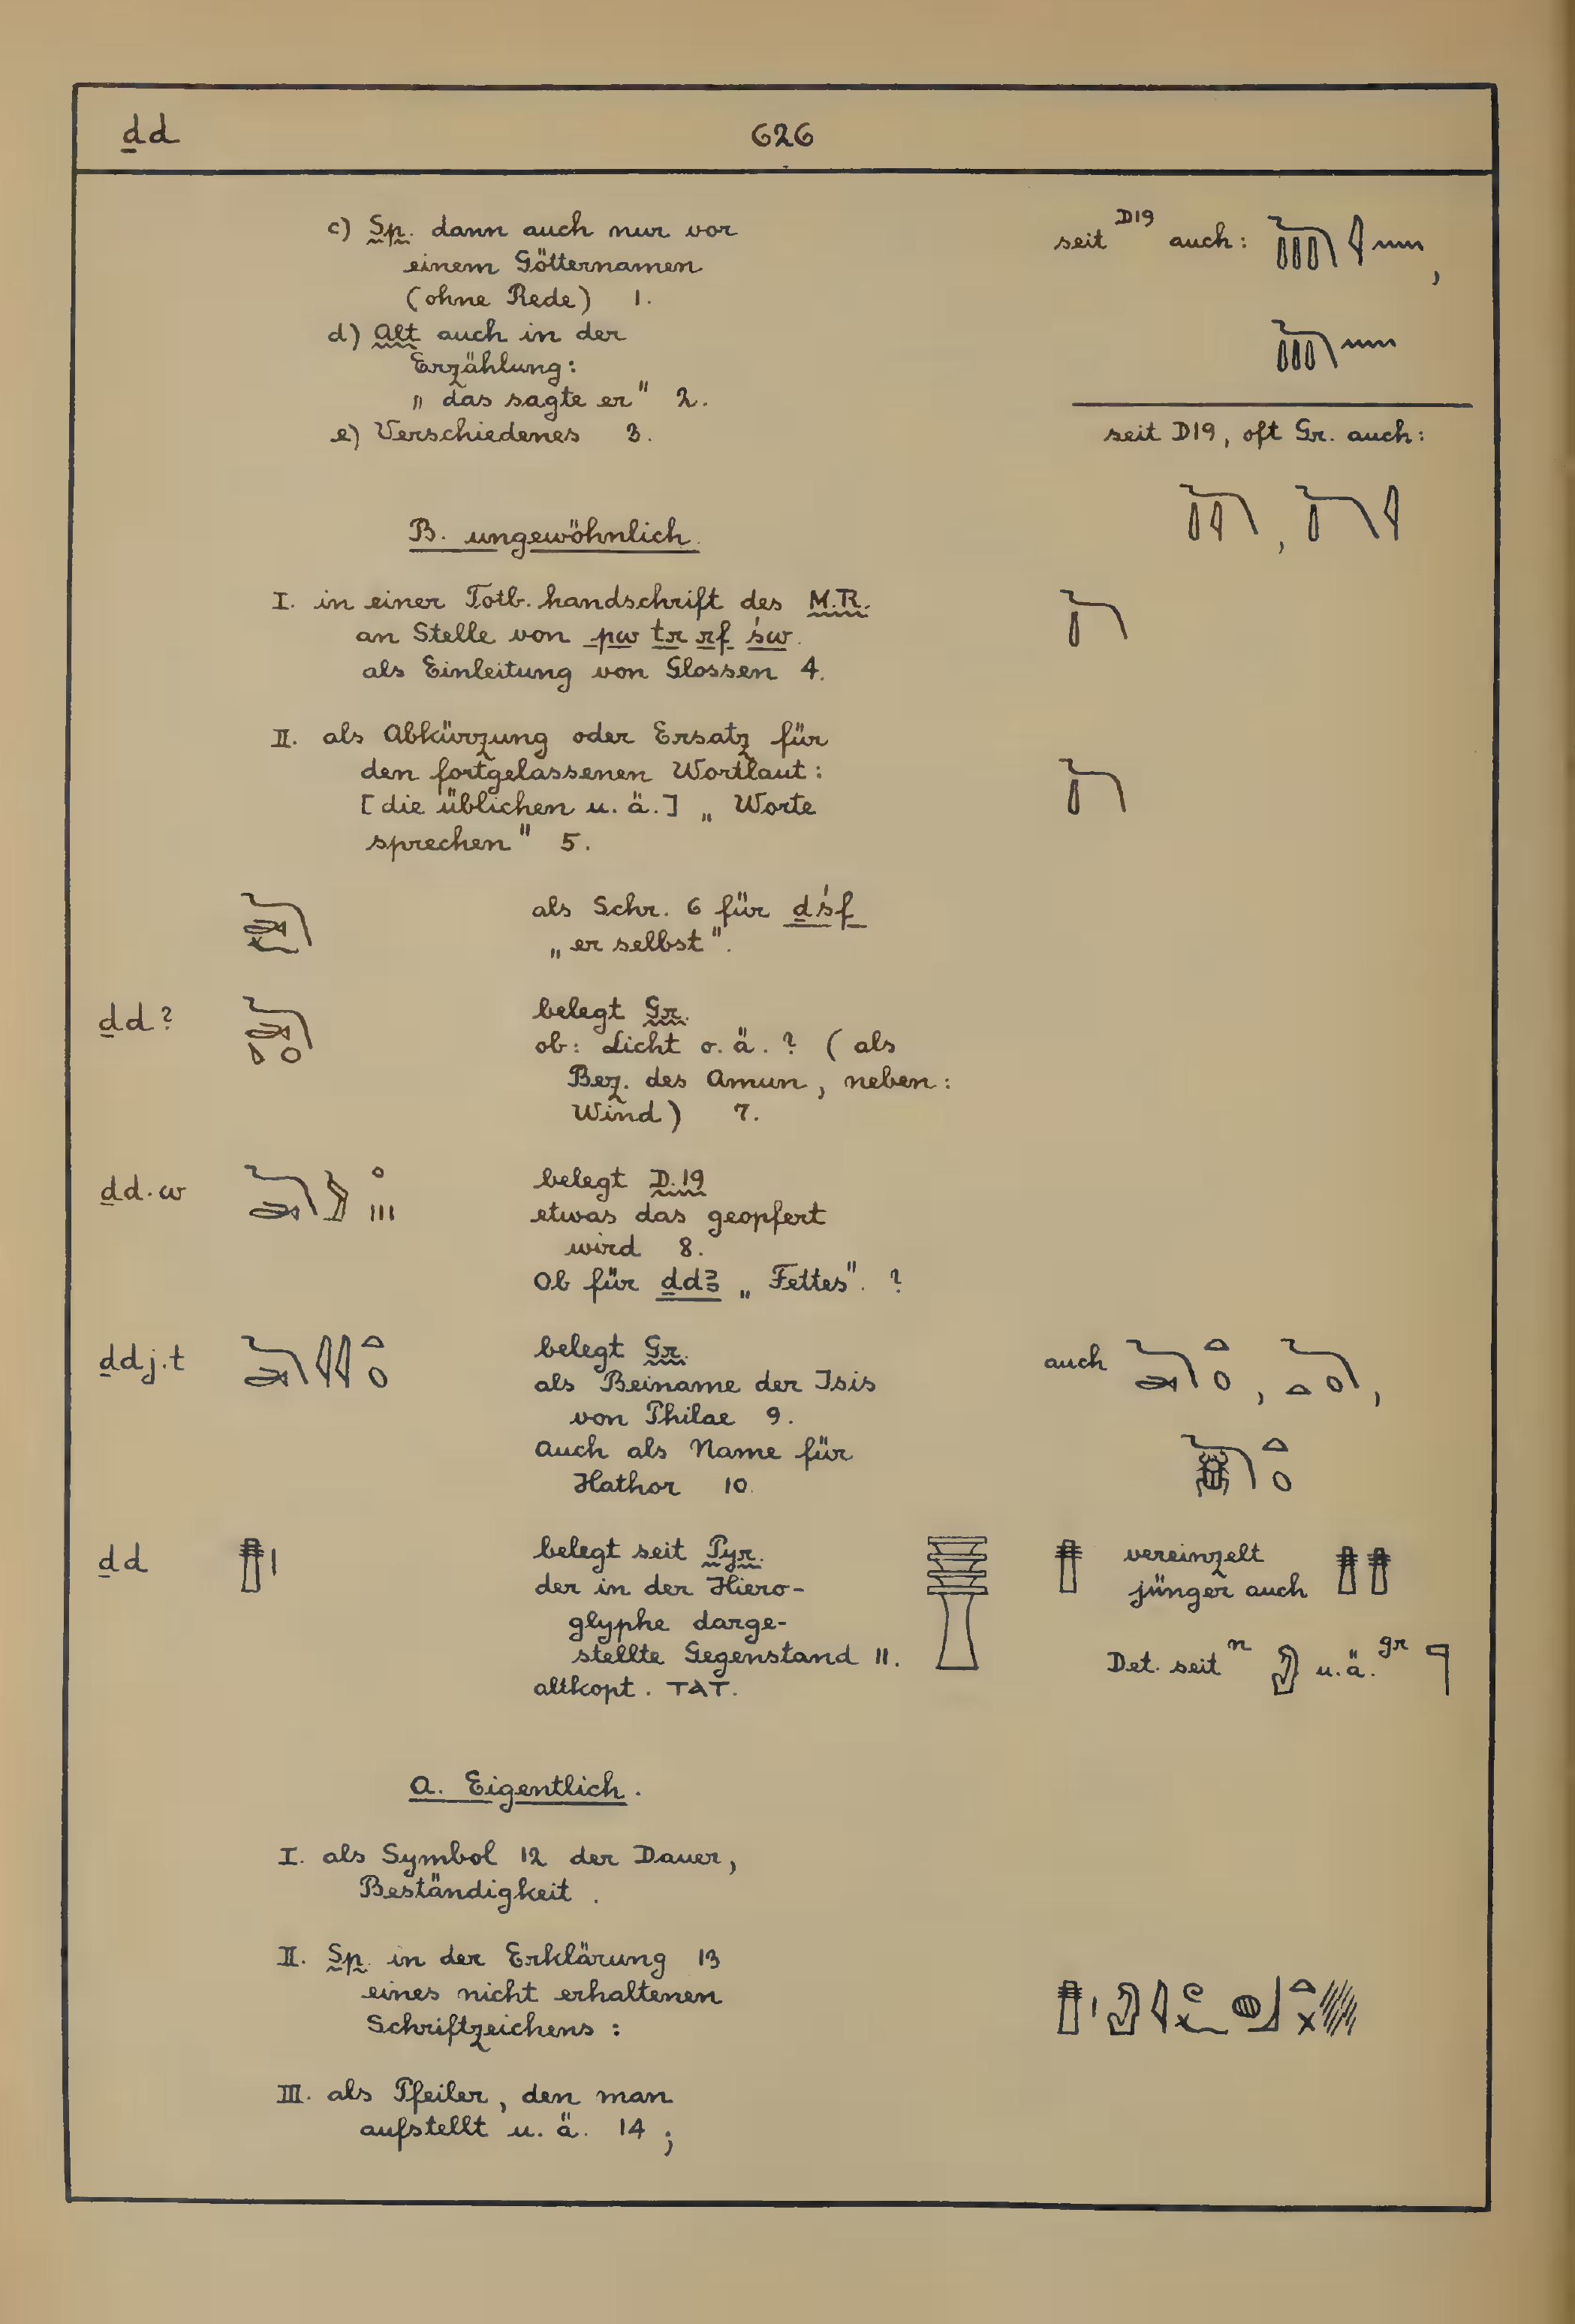 ḏd 626
c) Sp. dann auch nur vor
einem Götternamen
(ohne Rede) 1.
seit D19 auch: 𓆓𓏥𓇋𓈖,
d) Alt auch in der
Erzählung:
„das sagte er" 2.
e) Verschiedenes 3.
seit D19, oft Gr. auch:
B. ungewöhnlich.
I. in einer Totb. handschrift des M.R.
an Stelle von pw tr rf św.
als Einleitung von Glossen 4.
II. als Abkürzung oder Ersatz für
den fortgelassenen Wortlaut:
[die üblichen u. ä.] „Worte
sprechen" 5.
als Schr. 6 für ḏśf
„er selbst".
ḏd? belegt Gr.
ob: Licht o. ä. ? (als
Bez. des Amun, neben:
Wind) 7.
ḏd.w belegt D.19
etwas das geopfert
wird 8.
Ob für ḏdꜣ „Fettes". ?
ḏdj.t belegt Gr.
als Beiname der Isis
von Philae 9.
Auch als Name für
Hathor 10.
auch
ḏd 𓊽𓏤 belegt seit Pyr.
der in der Hiero-
glyphe darge-
stellte Gegenstand 11.
altkopt. ⲧⲁⲧ.
𓊽 vereinzelt
jünger auch 𓊽𓊽
Det. seit n u. ä. gr 𓊹
A. Eigentlich.
I. als Symbol 12 der Dauer,
Beständigkeit.
II. Sp. in der Erklärung 13
eines nicht erhaltenen
Schriftzeichens:
III. als Pfeiler, den man
aufstellt u. ä. 14;